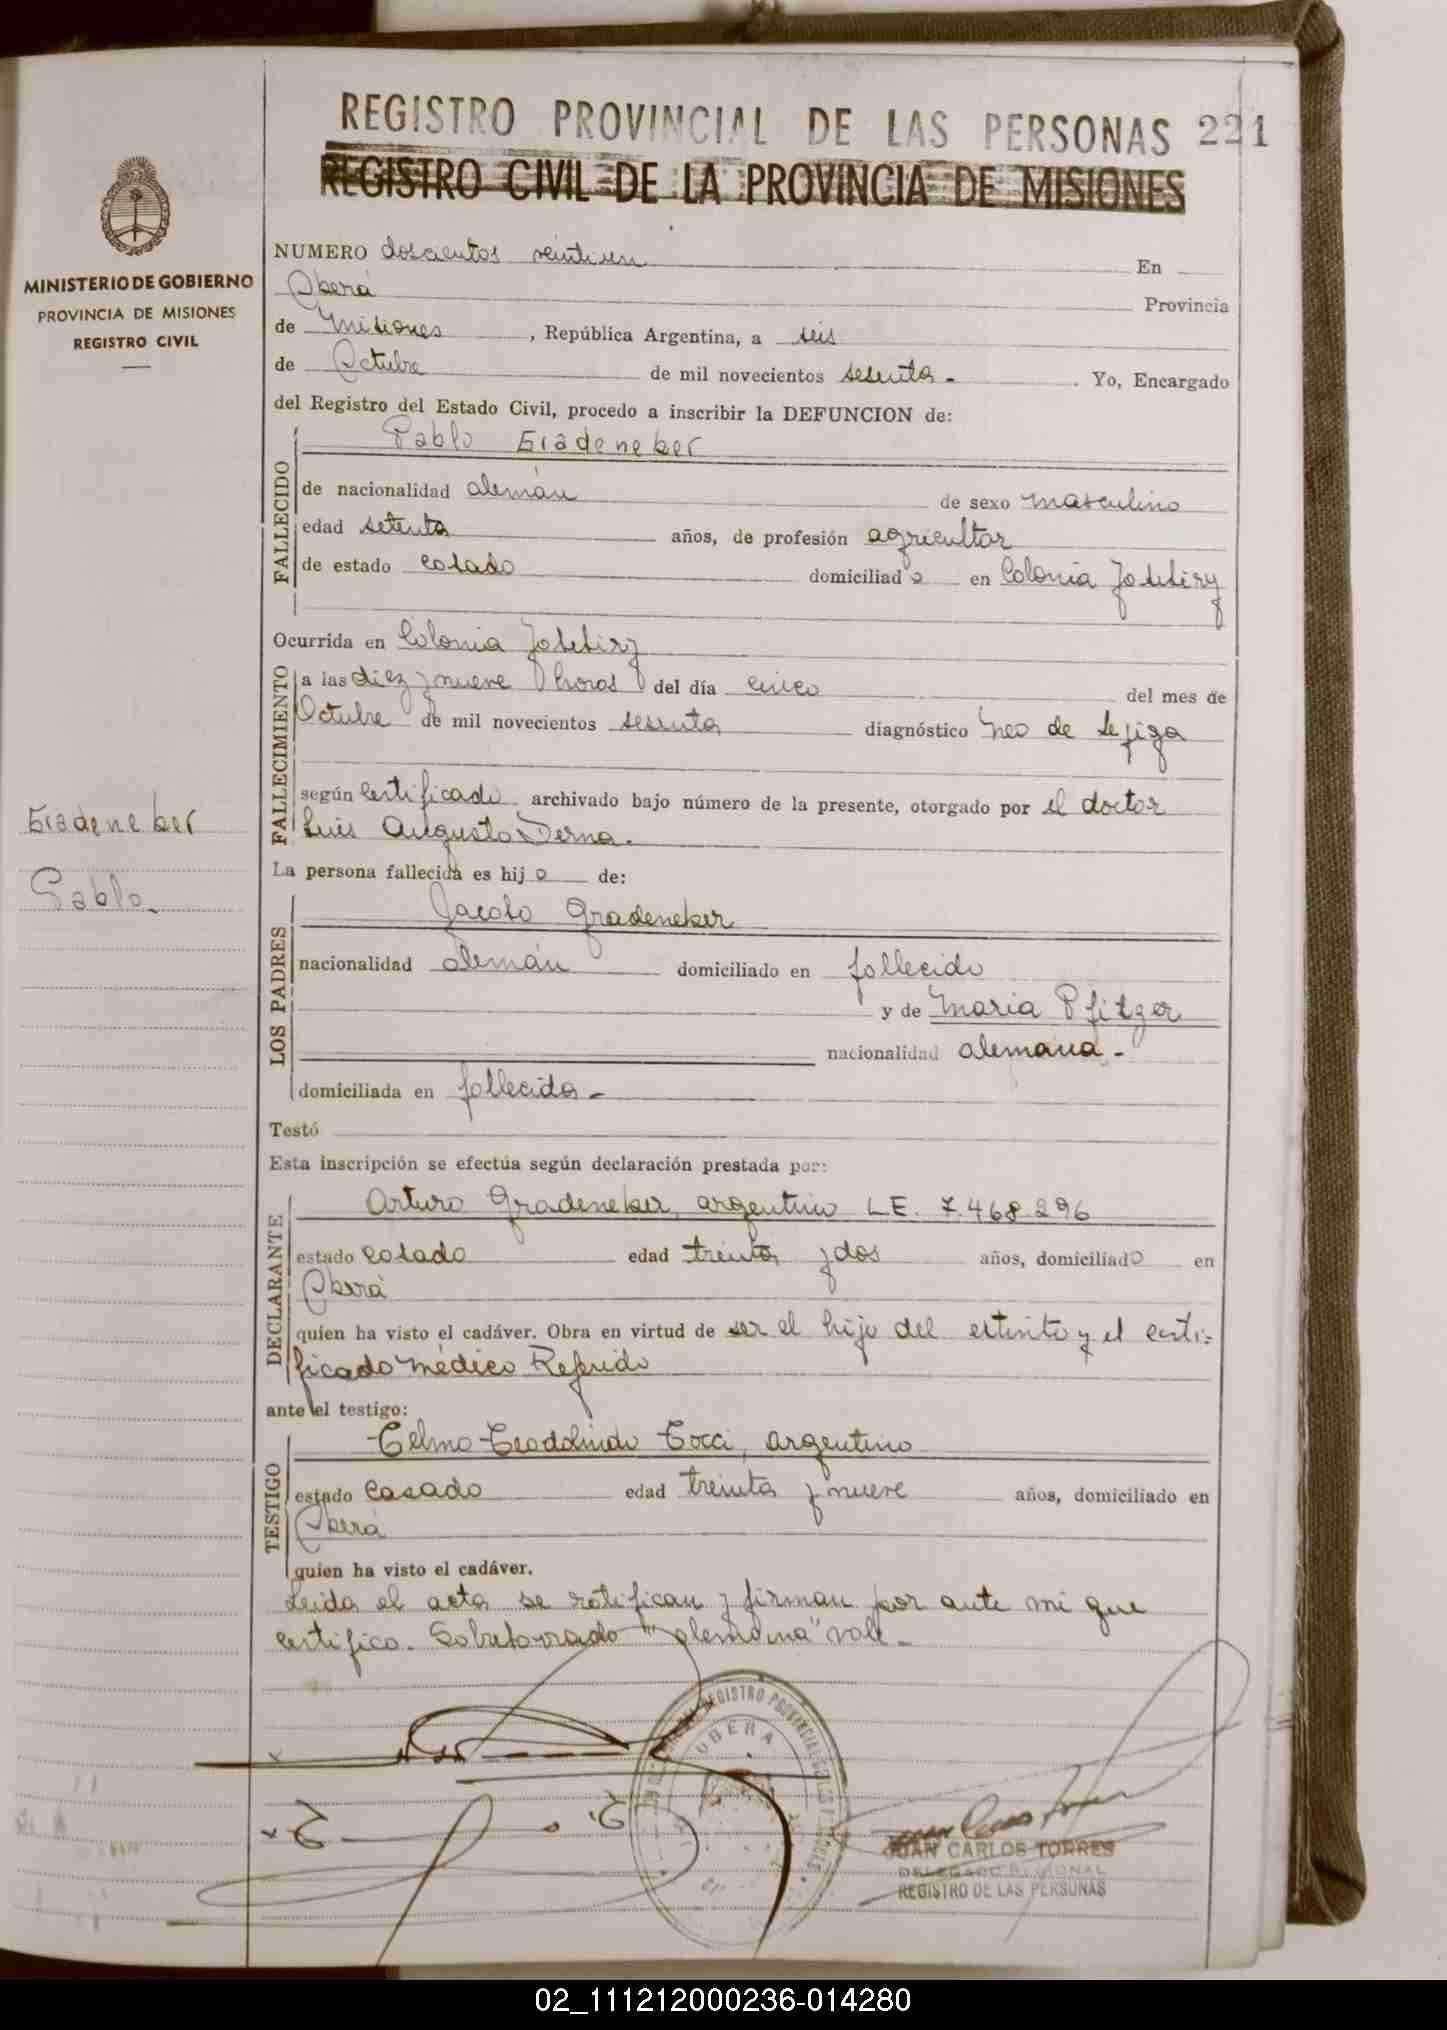 REGISTRO PROVINCIAL DE LAS PERSONAS 221
REGISTRO CIVIL DE LA PROVINCIA DE MISIONES
MINISTERIO DE GOBIERNO
PROVINCIA DE MISIONES
REGISTRO CIVIL
NUMERO doscientos veintiun En
Oberá Provincia
de Misiones, República Argentina, a seis
de Octubre de mil novecientos sesenta. Yo, Encargado
del Registro del Estado Civil, procedo a inscribir la DEFUNCION de:
Pablo Gradeneker
FALLECIDO
de nacionalidad alemán de sexo masculino
edad setenta años, de profesión agricultor
de estado casado domiciliado en Colonia
Ocurrida en Colonia
FALLECIMIENTO
a las diez y nueve horas del día cinco del mes de
Octubre de mil novecientos sesenta diagnóstico Neo de
según certificado archivado bajo número de la presente, otorgado por el doctor
Luis Augusto Derna.
Gradeneker
Pablo.
La persona fallecida es hijo de:
LOS PADRES
Jacobo Gradeneker
nacionalidad alemán domiciliado en fallecido
y de Maria Pfitzer
nacionalidad alemana.-
domiciliada en fallecida.-
Testó
Esta inscripción se efectúa según declaración prestada por:
DECLARANTE
Arturo Gradeneker, argentino L.E. 7.468.296
estado casado edad treinta y dos años, domiciliado en
Oberá
quien ha visto el cadáver. Obra en virtud de ser el hijo del extinto y el certi=
ficado médico Referido
ante el testigo:
TESTIGO
Telmo Teodolindo Tocci, argentino
estado casado edad treinta y nueve años, domiciliado en
Oberá
quien ha visto el cadáver.
Leida el acta se ratifican y firman por ante mi que
certifico. Sobreborrado "alemana" vale.-
OBERA
JUAN CARLOS TORRES
DELEGADO REGIONAL
REGISTRO DE LAS PERSONAS
02_111212000236-014280